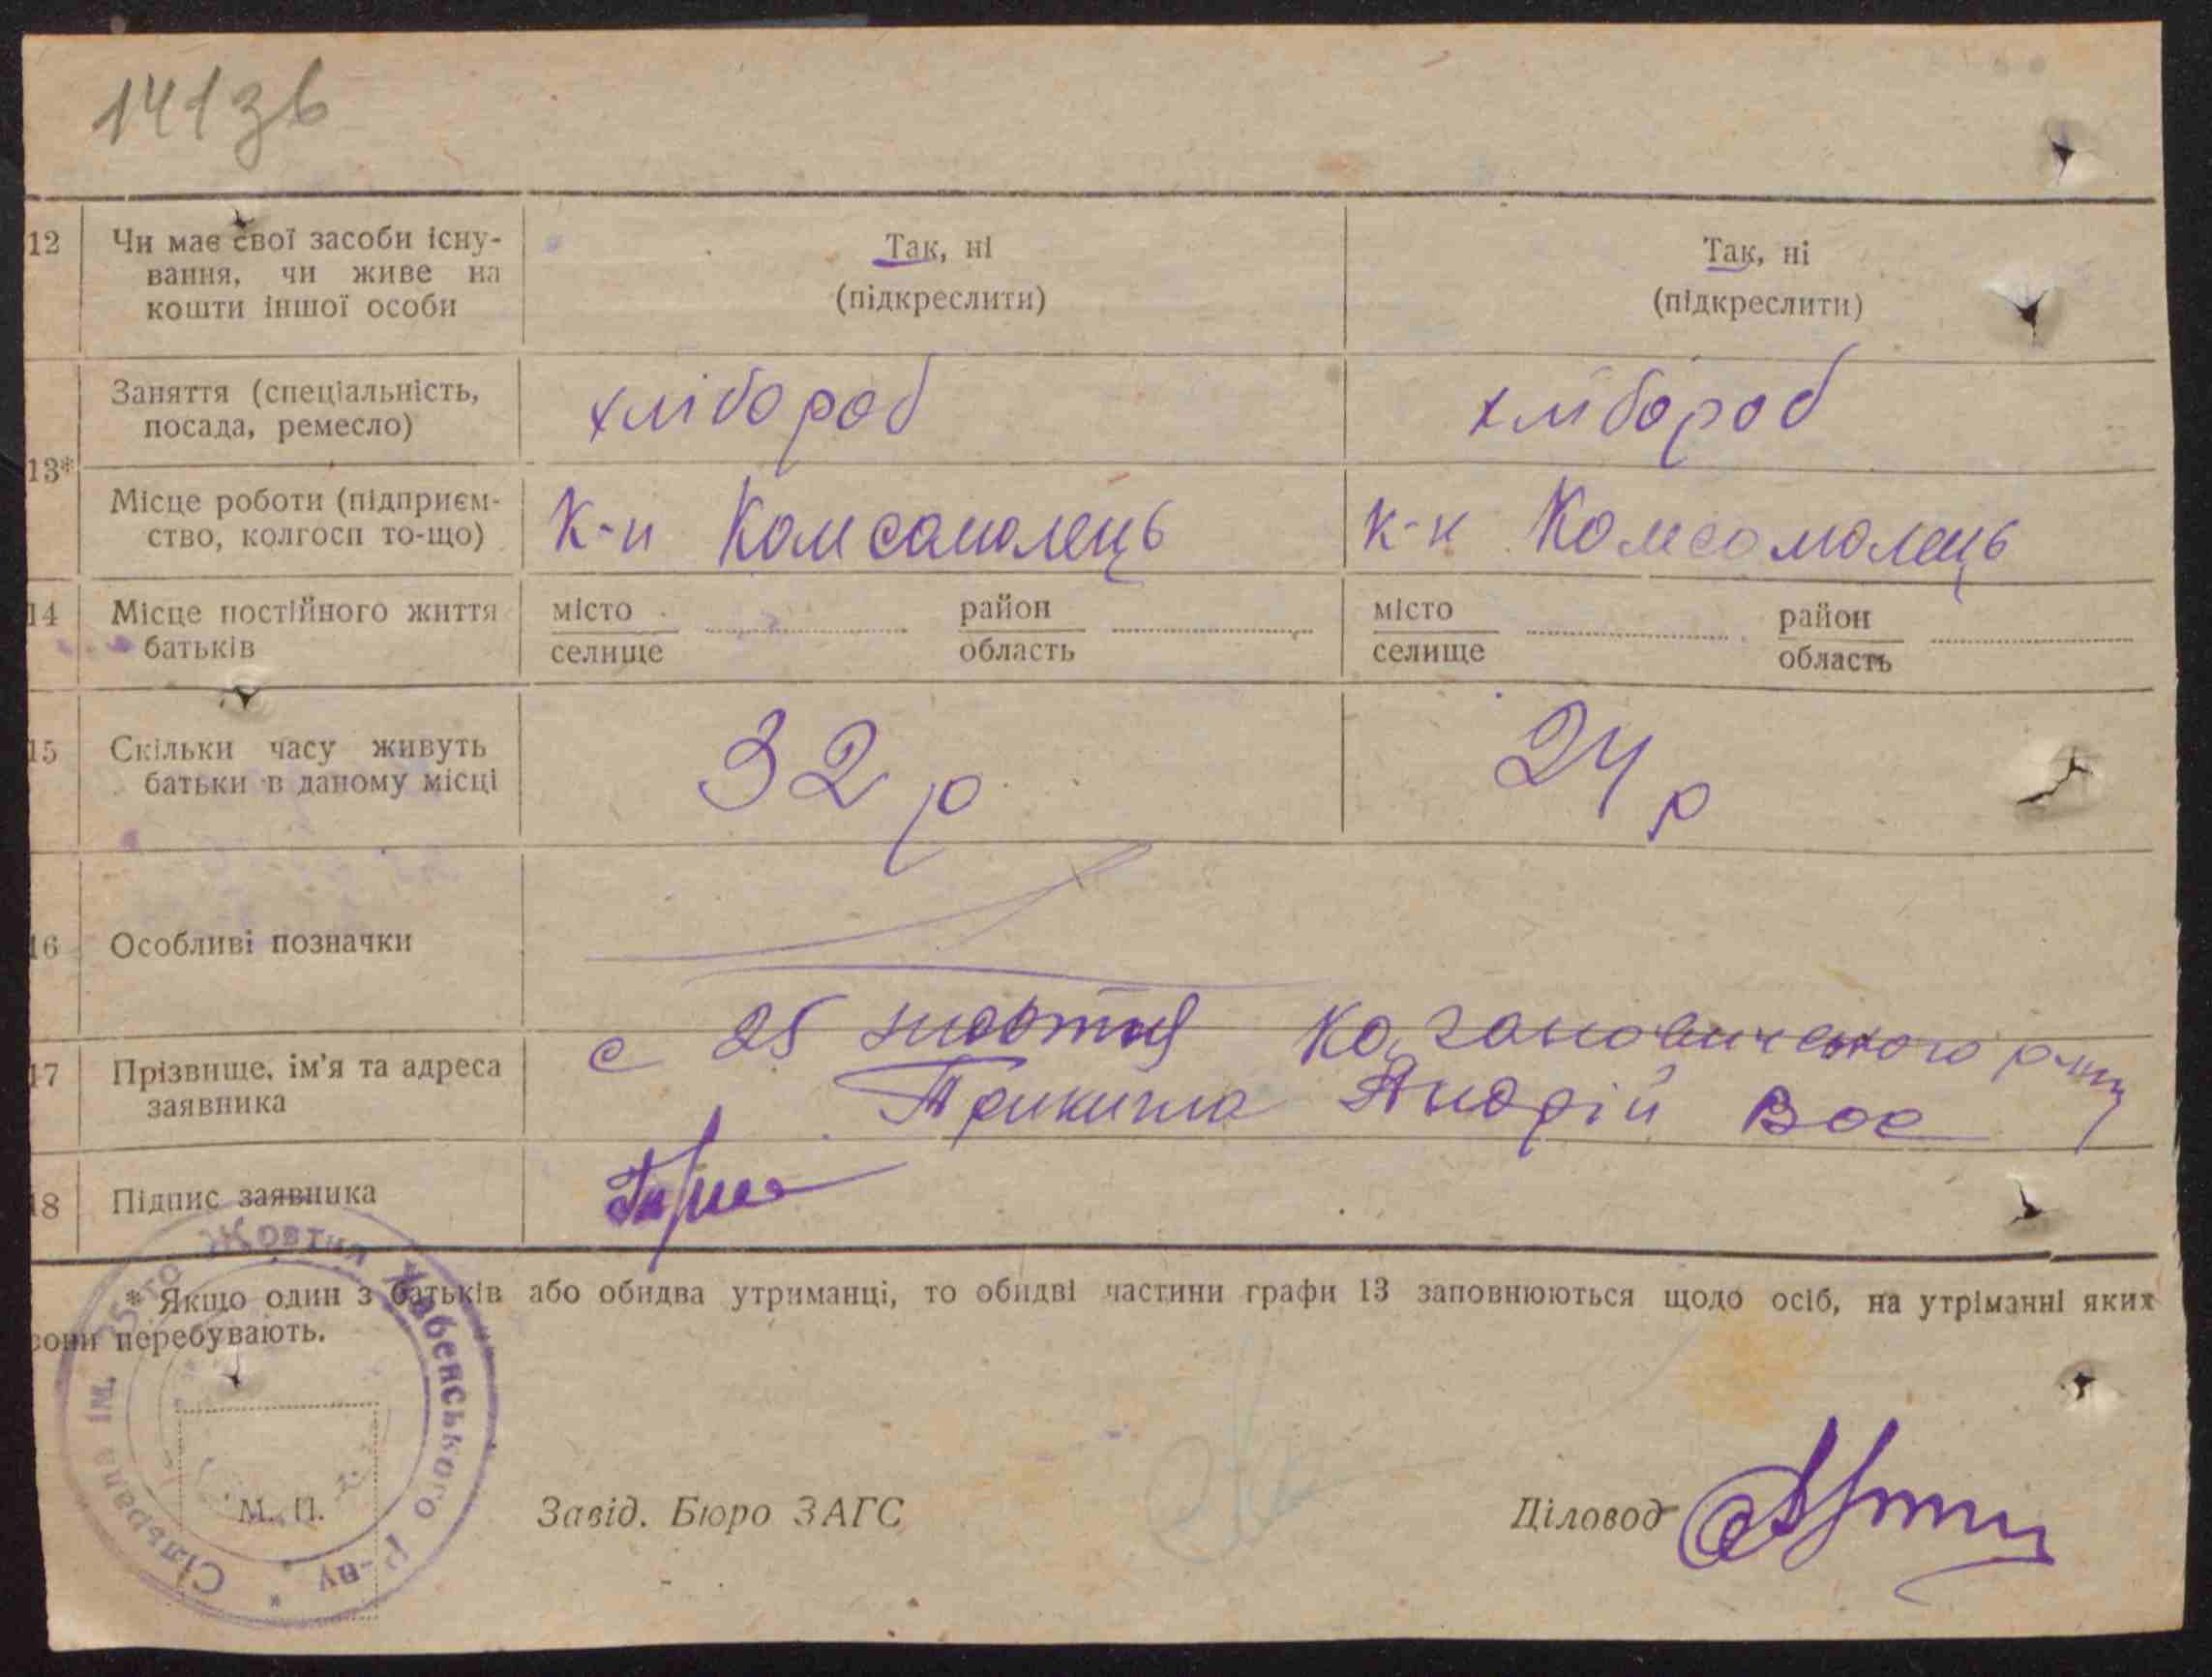 141зв
12 Чи має свої засоби існу- Так, ні Так, ні
вання, чи живе на (підкреслити) (підкреслити)
кошти іншої особи
13* Заняття (спеціальність, хлібороб хлібороб
посада, ремесло)
Місце роботи (підприєм- К-п Комсомолець К-п Комсомолець
ство, колгосп то-що)
14 Місце постійного життя місто район місто район
батьків селище область селище область
15 Скільки часу живуть 32 р 24 р
батьки в даному місці
16 Особливі позначки
с 25 жовтня Кагановичського р-ну
17 Прізвище, ім'я та адреса
заявника Андрій Вас
18 Підпис заявника
* Якщо один з батьків або обидва утриманці, то обидві частини графи 13 заповнюються щодо осіб, на утріманні яких
вони перебувають.
Сільрада ім. 25-го Жовтня р-ну *
М. П. Завід. Бюро ЗАГС Діловод